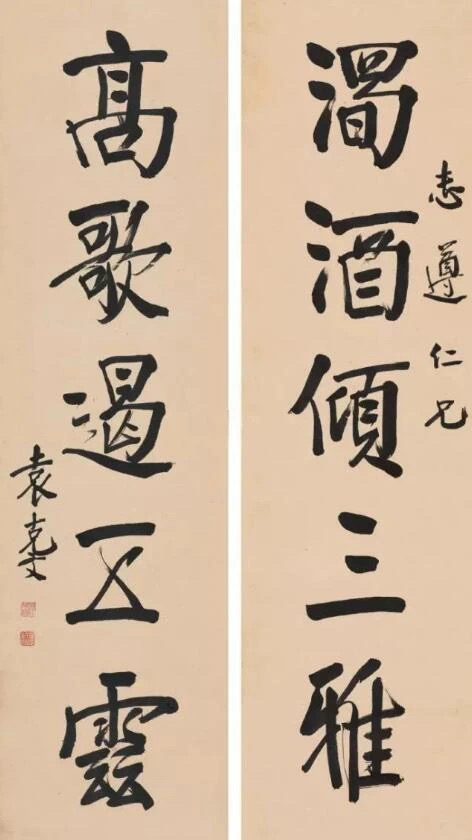 志遵仁兄
渴酒傾三雅
高歌遏五雲
袁克文